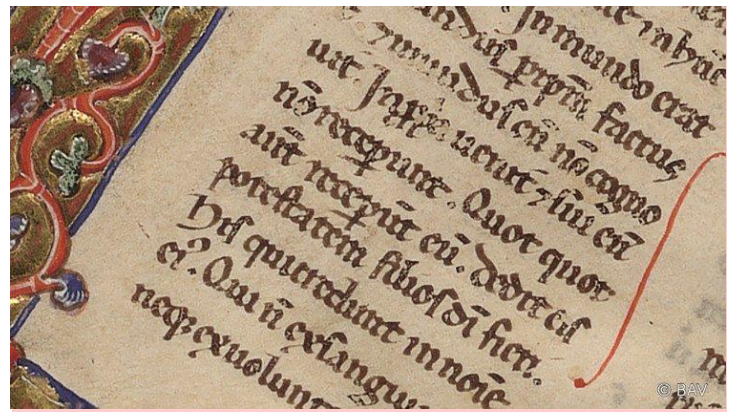 inhūc
Inmundo erat
dus ꝑip̄m factus
⁊ mundus eū nō cogno
uit. Inꝓp̄a uenit ⁊ sui eū
nōreceꝑunt. Quot quot
aūt receꝑūt eū. dedit eis
potestatem filios dī fieri.
His qui credunt innoīe
ei᷒. Qui n̄ exsangui
neqꝫ exuolunt
© BAV